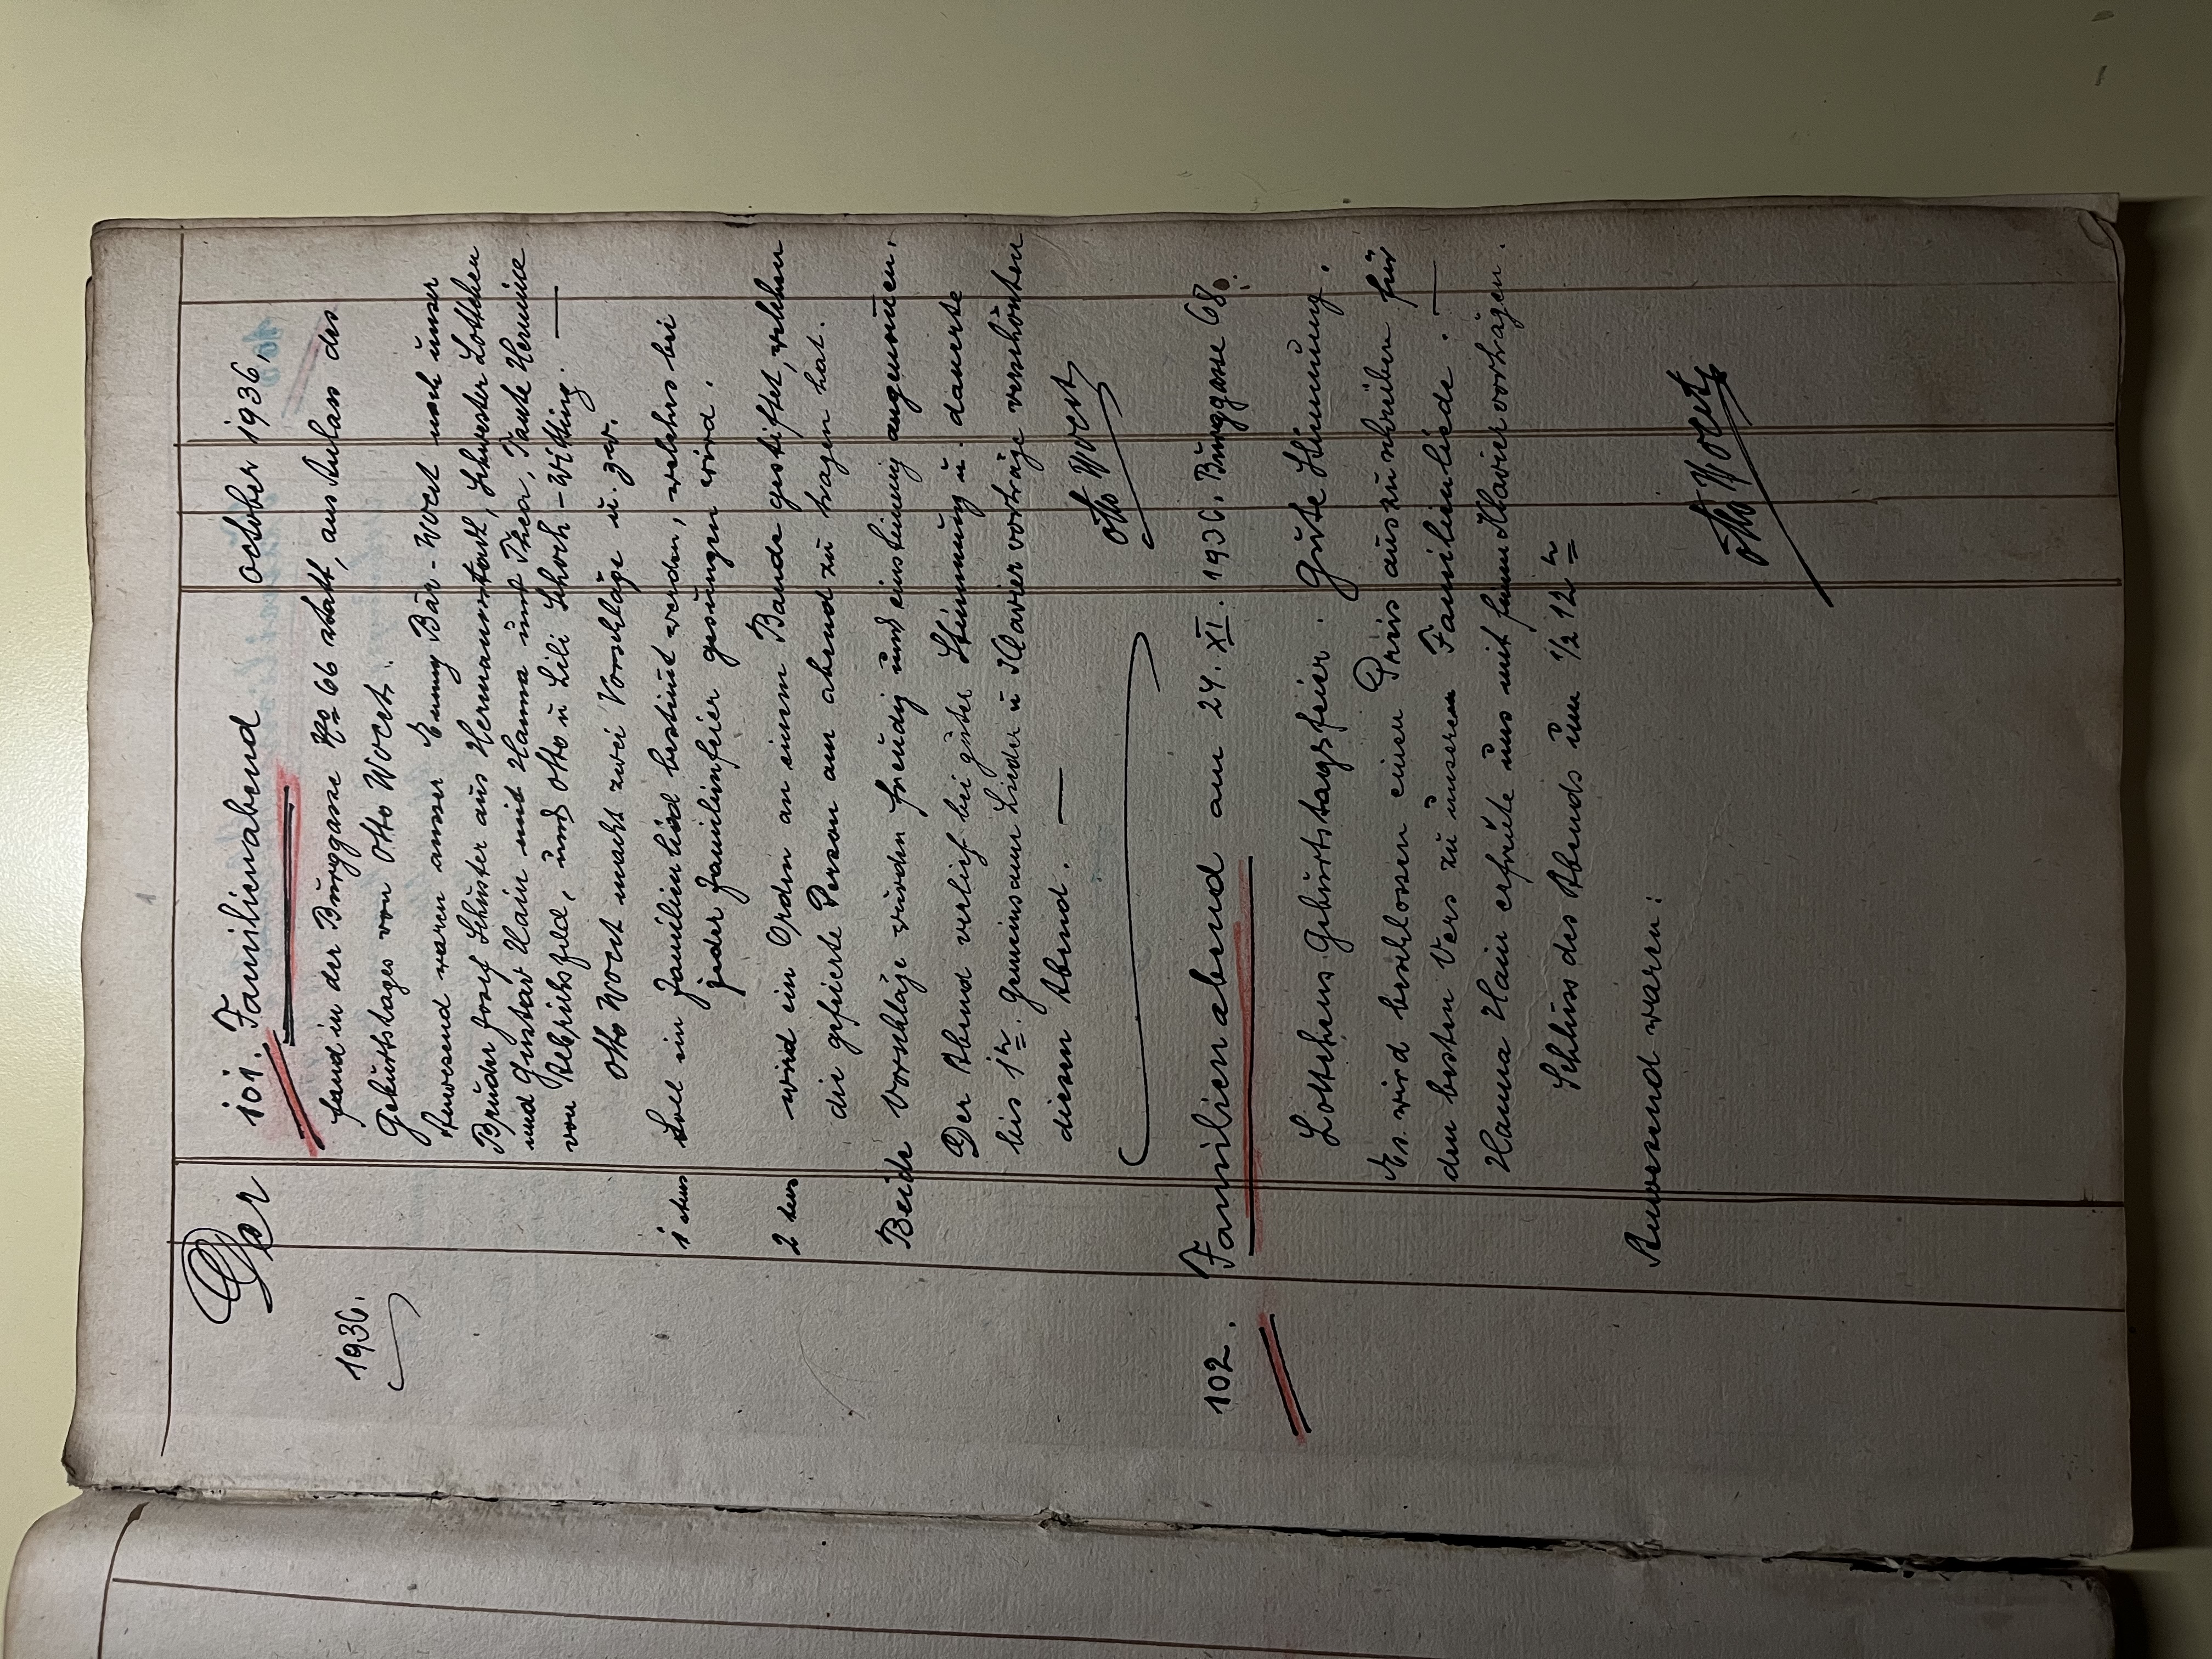 Der 101. Familienabend october 1936.
1936.
fand in der Burggasse No 66 statt, aus Anlass des
Geburtstages von Otto Wocet.
Anwesend waren ausser Emmy Bär-Wocet noch unser
Bruder Josef Schuster aus Hermannstadt, Schwester Lottchen
und Gustav Hain mit Hanna und Thea, Tante Hermine
von Sebpichsfeld, und Otto u Lili Schoch-Witting.
Otto Wocet macht zwei Vorschläge u. zw.
1 tens Soll ein Familienlied bestimt werden, welches bei
jeder Familienfeier gesungen wird.
2 tens wird ein Orden an einem Bande gestiftet, welchen
die gefeierte Person am abend zu tragen hat.
Beide Vorschläge wurden freudig und einstimmig angenomen.
Der Abend verlief bei guter Stimmung u. dauerte
bis 1h. Gemeinsame Lieder u Klaviervorträge verschönten
diesen Abend. —
Otto Wocet
102. Familienabend am 24. XI. 1936. Burggasse 68.
Lottchens Geburtstagsfeier. Gute Stimmung.
Es wird beschlossen einen Preis auszuschreiben für
den besten Vers zu unserem Familienliede. —
Hanna Hain erfreute uns mit Klaviervorträgen.
Schluss des Abends um ½ 12 h
Anwesend waren:
Otto Wocet